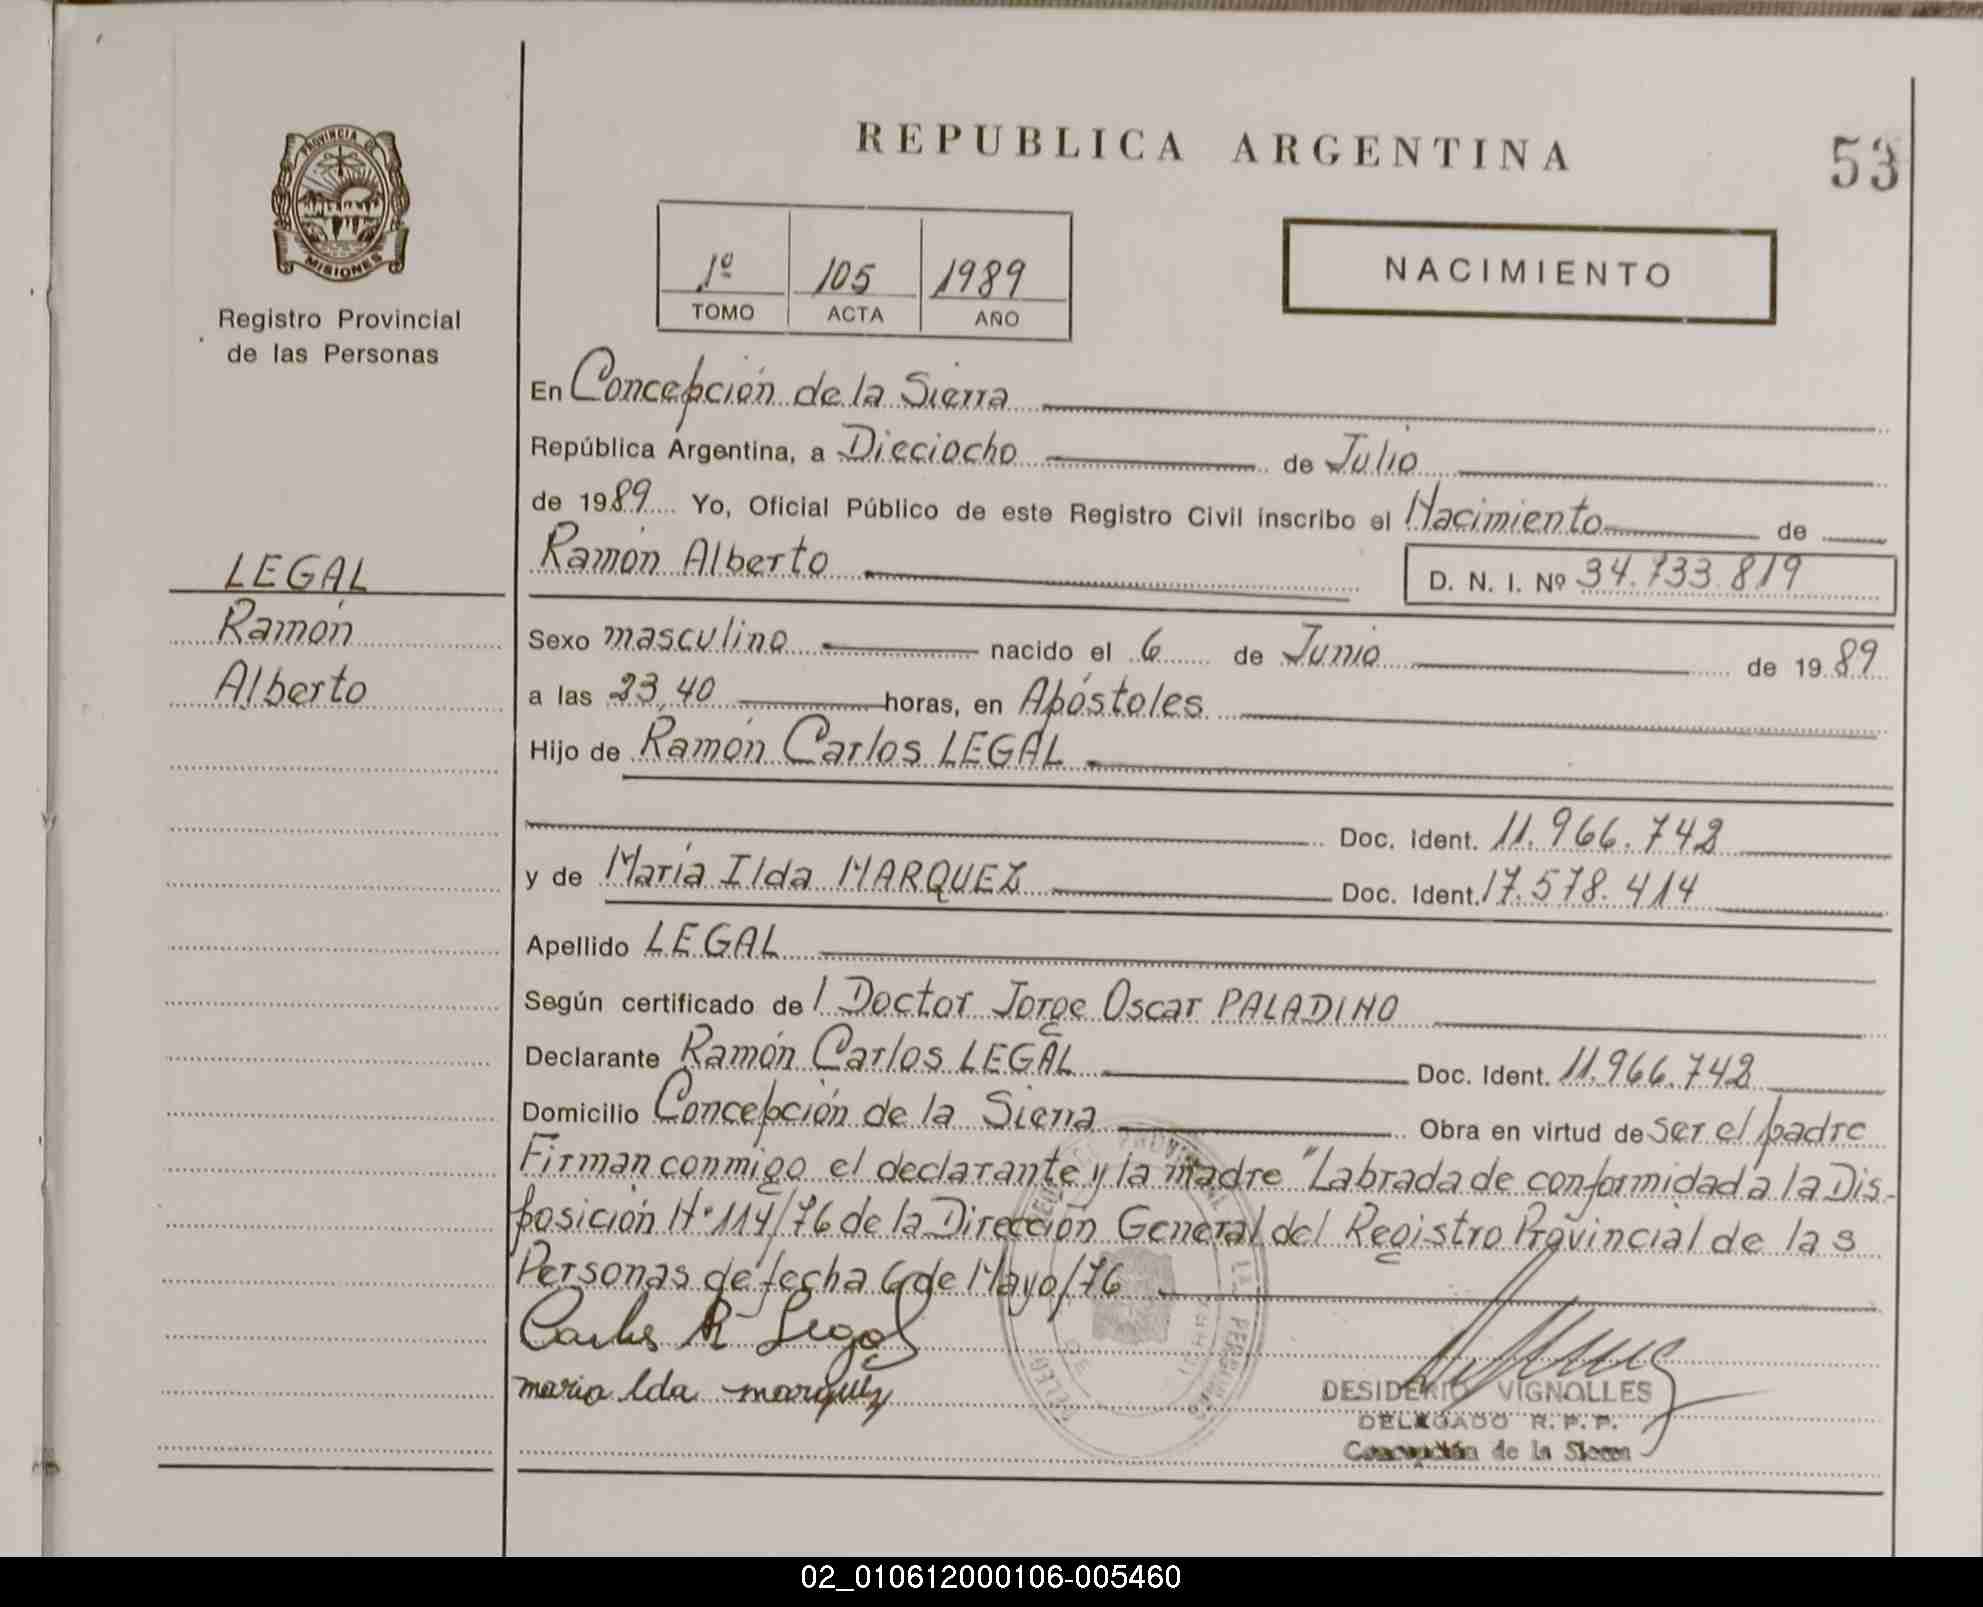 REPUBLICA ARGENTINA
53
PROVINCIA DE
MISIONES
Registro Provincial
de las Personas
1º 105 1989
TOMO ACTA AÑO
NACIMIENTO
En Concepción de la Sierra
República Argentina, a Dieciocho de Julio
de 1989 Yo, Oficial Público de este Registro Civil inscribo el Nacimiento de
Ramón Alberto D. N. I. Nº 34.733.819
LEGAL
Ramón
Alberto
Sexo masculino nacido el 6 de Junio de 1989
a las 23,40 horas, en Apóstoles
Hijo de Ramón Carlos LEGAL
Doc. Ident. 11.966.742
y de María Ilda MARQUEZ Doc. Ident. 17.578.414
Apellido LEGAL
Según certificado de l Doctor Jorge Oscar PALADINO
Declarante Ramón Carlos LEGAL Doc. Ident. 11.966.742
Domicilio Concepción de la Sierra Obra en virtud de ser el padre
Firman conmigo el declarante y la madre "Labrada de conformidad a la Dis-
posición N° 114/76 de la Dirección General del Registro Provincial de las
Personas de fecha 6 de Mayo/76
Carlos R Legal
maria lda marquez
DESIDERIO VIGNOLLES
DELEGADO R. P. P.
Concepción de la Sierra
02_010612000106-005460